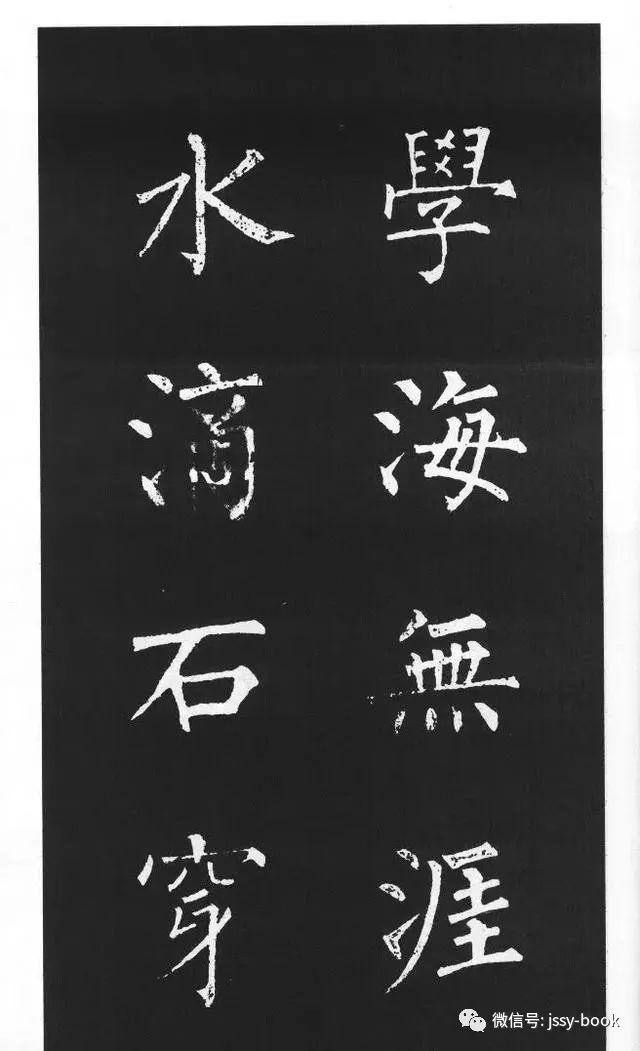 學海無涯
水滴石穿
微信号: jssy-book